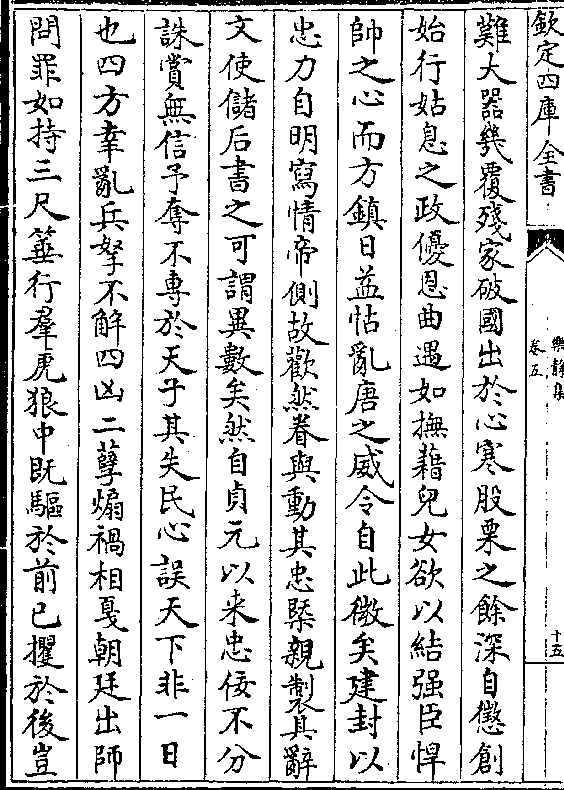 欽定四庫全書
樂靜集
卷五
十五
難大器幾覆殘家破國出於心寒股栗之餘深自懲創
始行姑息之政優恩曲遇如撫藉兒女欲以結强臣悍
帥之心而方鎮日益怙亂唐之威令自此微矣建封以
忠力自明寫情帝側故歡然眷與動其忠槩親製其辭
文使儲后書之可謂異數矣然自貞元以来忠佞不分
誅賞無信予奪不專於天子其失民心誤天下非一日
也四方幸亂兵拏不解四凶二孽煽禍相戛朝廷出師
問罪如持三尺箠行羣虎狼中既驅於前已攫於後豈